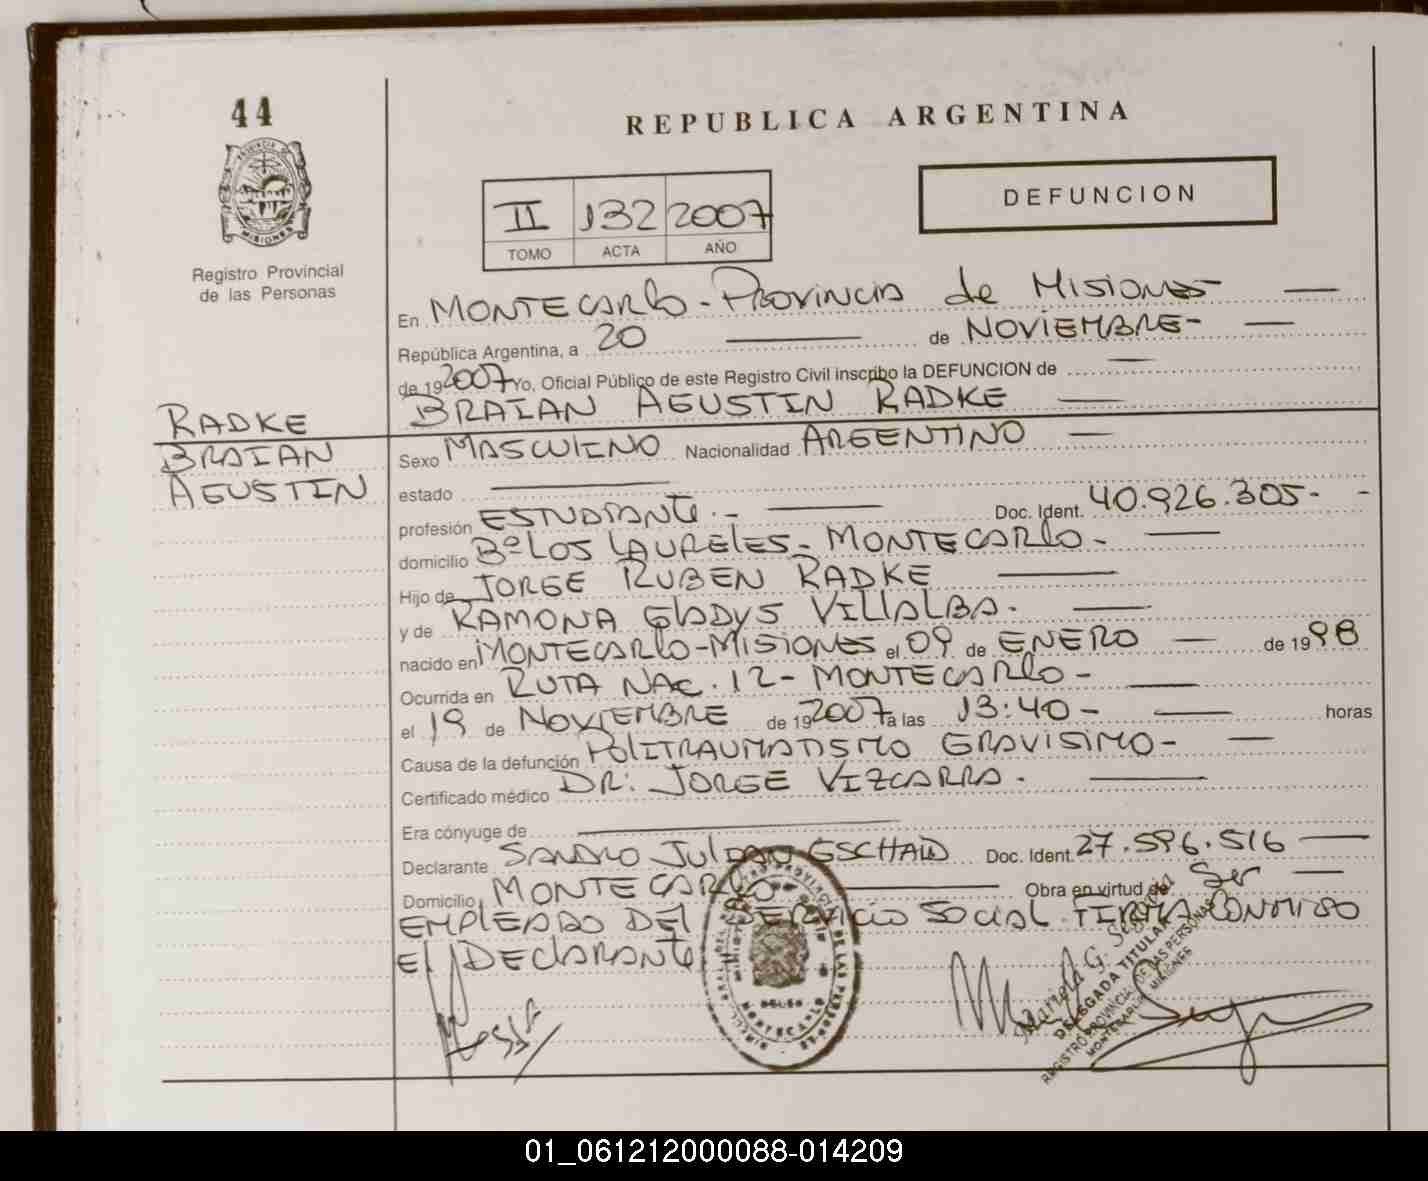 44
REPUBLICA ARGENTINA
DEFUNCION
II 132 2007
TOMO ACTA AÑO
Registro Provincial
de las Personas
En MONTECARLO - PROVINCIA de MISIONES
República Argentina, a 20 de NOVIEMBRE-
de 192007 Yo, Oficial Público de este Registro Civil inscribo la DEFUNCION de
BRAIAN AGUSTIN RADKE
RADKE
BRAIAN
AGUSTIN
Sexo MASCULINO Nacionalidad ARGENTINO
estado
profesión ESTUDIANTE.- Doc. Ident. 40.926.305-
domicilio Bº LOS LAURELES - MONTECARLO -
Hijo de JORGE RUBEN RADKE
y de RAMONA GLADYS VILLALBA.
nacido en MONTECARLO-MISIONES el 09 de ENERO de 1998
Ocurrida en RUTA NAC. 12 - MONTECARLO -
el 19 de NOVIEMBRE de 192007 a las 13:40 - horas
Causa de la defunción POLITRAUMATISMO GRAVISIMO -
Certificado médico DR: JORGE VIZCARRA.
Era cónyuge de
Declarante SANDRO JULIAN Doc. Ident. 27.596.516
Domicilio MONTECARLO Obra en virtud de Ser
EMPLEADO DEL SERVICIO SOCIAL. FIRMA CONMIGO
El DEClARANTE
Mariela G.
DELEGADA TITULAR
REGISTRO PROVINCIAL DE LAS PERSONAS
MONTECARLO MISIONES
01_061212000088-014209